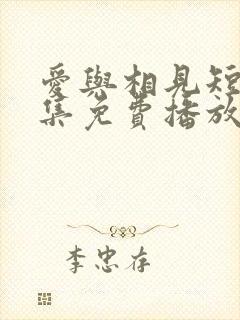 愛與相見短
集免費播放
李忠存